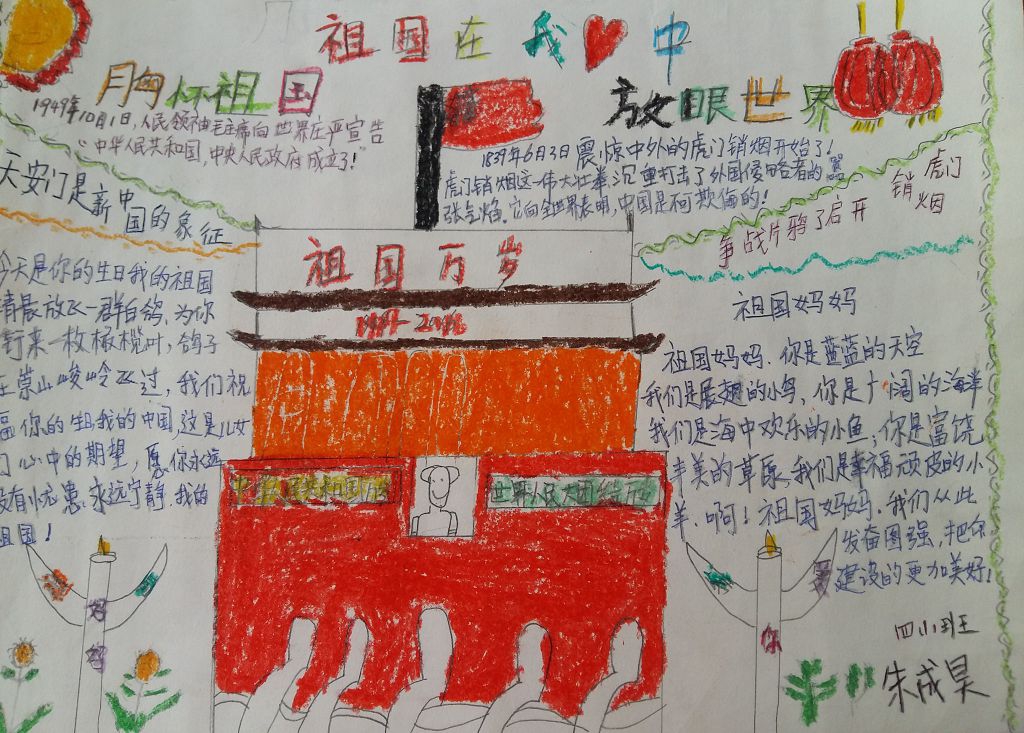 祖国在我中
胸怀祖国
放眼世界
1949年10月1日,人民领袖毛主席向世界庄严宣告
“中华人民共和国,中央人民政府成立了!
1839年6月3日震惊中外的虎门销烟开始了!
虎门销烟这一伟大壮举沉重打击了外国侵略者的嚣
张气焰,它向全世界表明,中国是不可欺侮的!
天安门是新中
国的象征
虎门
销烟
争战片鸦了启开
祖国万岁
1949-2018
今天是你的生日我的祖国
清晨放飞一群白鸽,为你
衔来一枚橄榄叶,鸽子
在崇山峻岭飞过,我们祝
福你的生日我的中国,这是儿女
们心中的期望,愿你永远
没有忧患,永远宁静.我的
祖国!
祖国妈妈
祖国妈妈.你是蓝蓝的天空
我们是展翅的小鸟,你是广阔的海洋
我们是海中欢乐的小鱼,你是富饶
丰美的草原,我们是幸福顽皮的小
羊.啊!祖国妈妈.我们从此
发奋图强,把你
建设的更加美好!
中华人民共和国万岁
世界人民大团结万岁
四小班
朱成昊